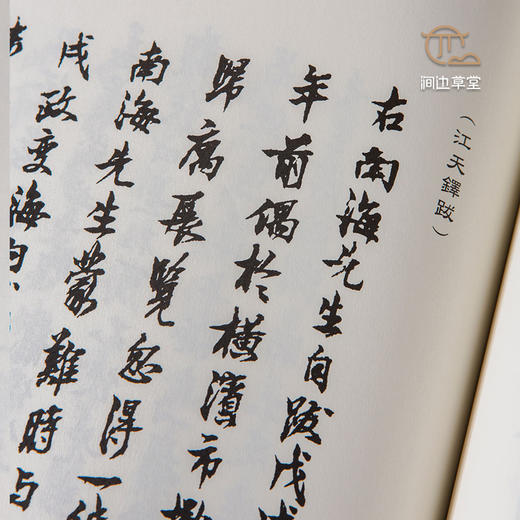 涧边草堂
（江天鐸跋）
右南海先生自跋戊戌
年前偶於橫濱市
歸展覽忽得一
南海先生蒙難時与
戌政变海